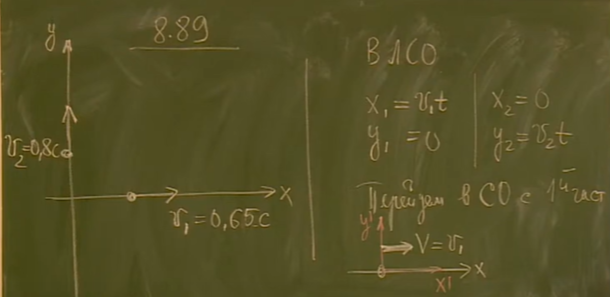 8.89
y
v₂=0,8c
x
v₁=0,65c
В ЛСО
x₁=v₁t
y₁=0
x₂=0
y₂=v₂t
Перейдем в СО с 1й част
y'
V=v₁
x' x